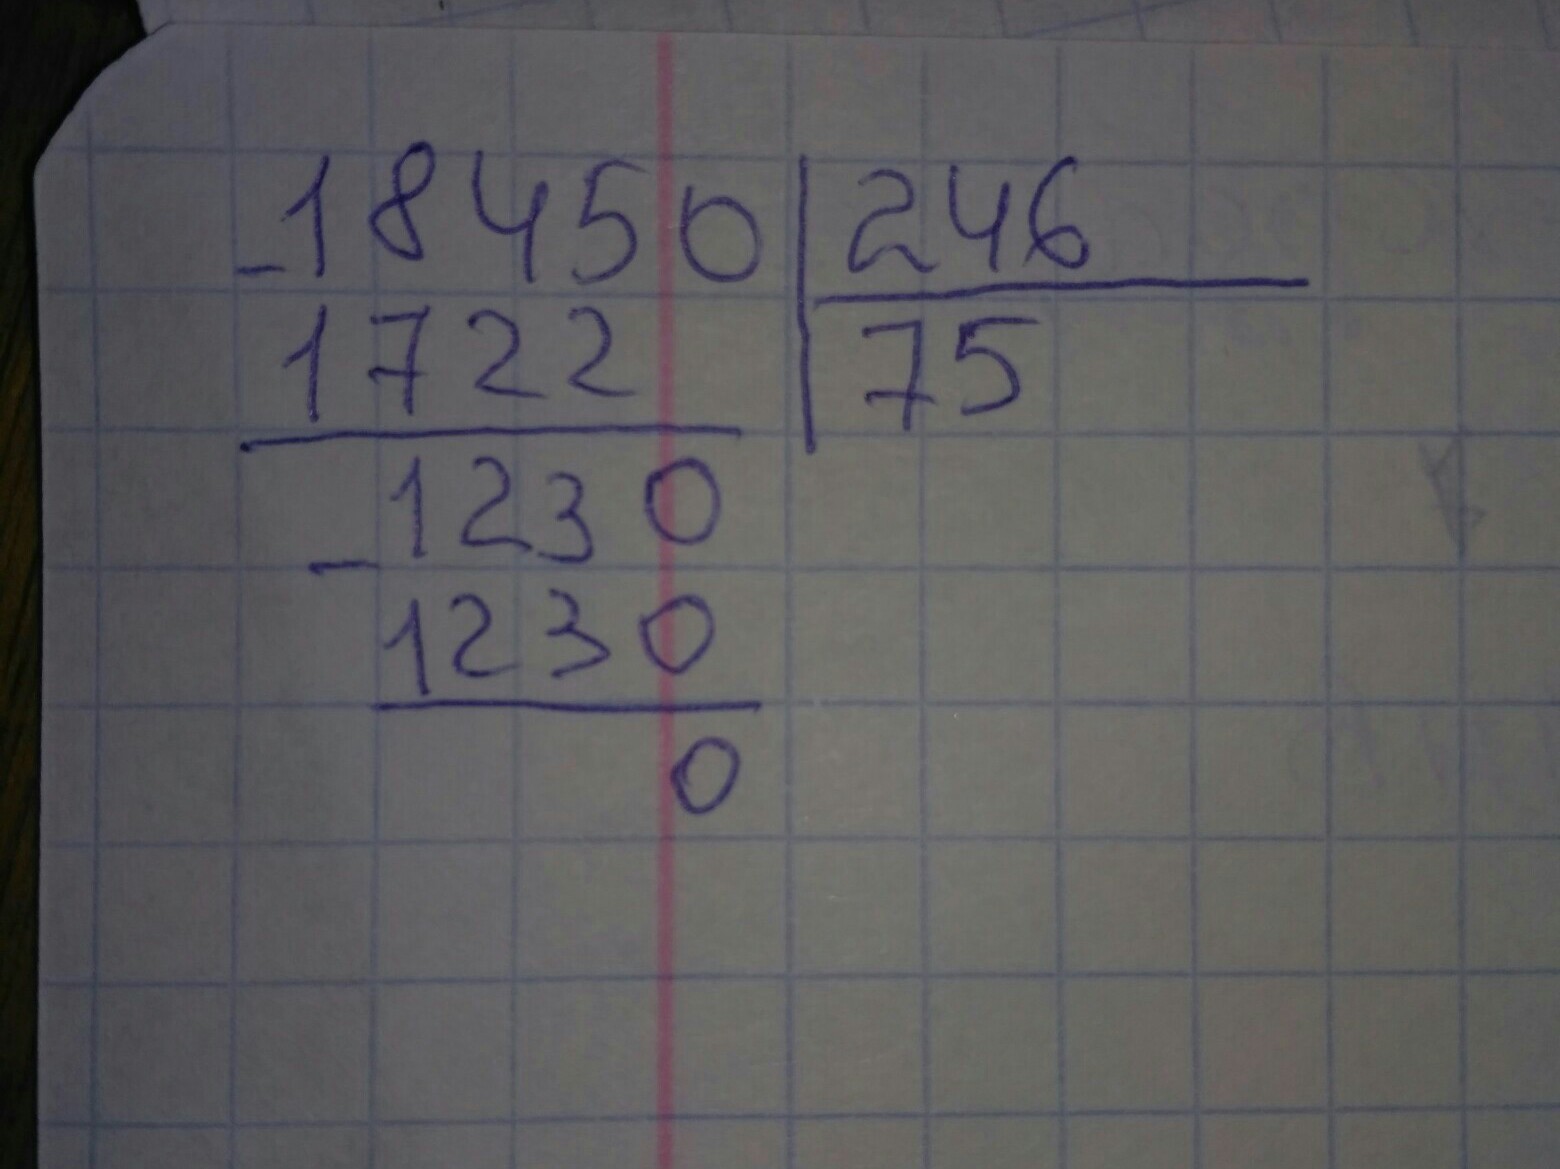 -18450 246
1722 75
1230
-
1230
0